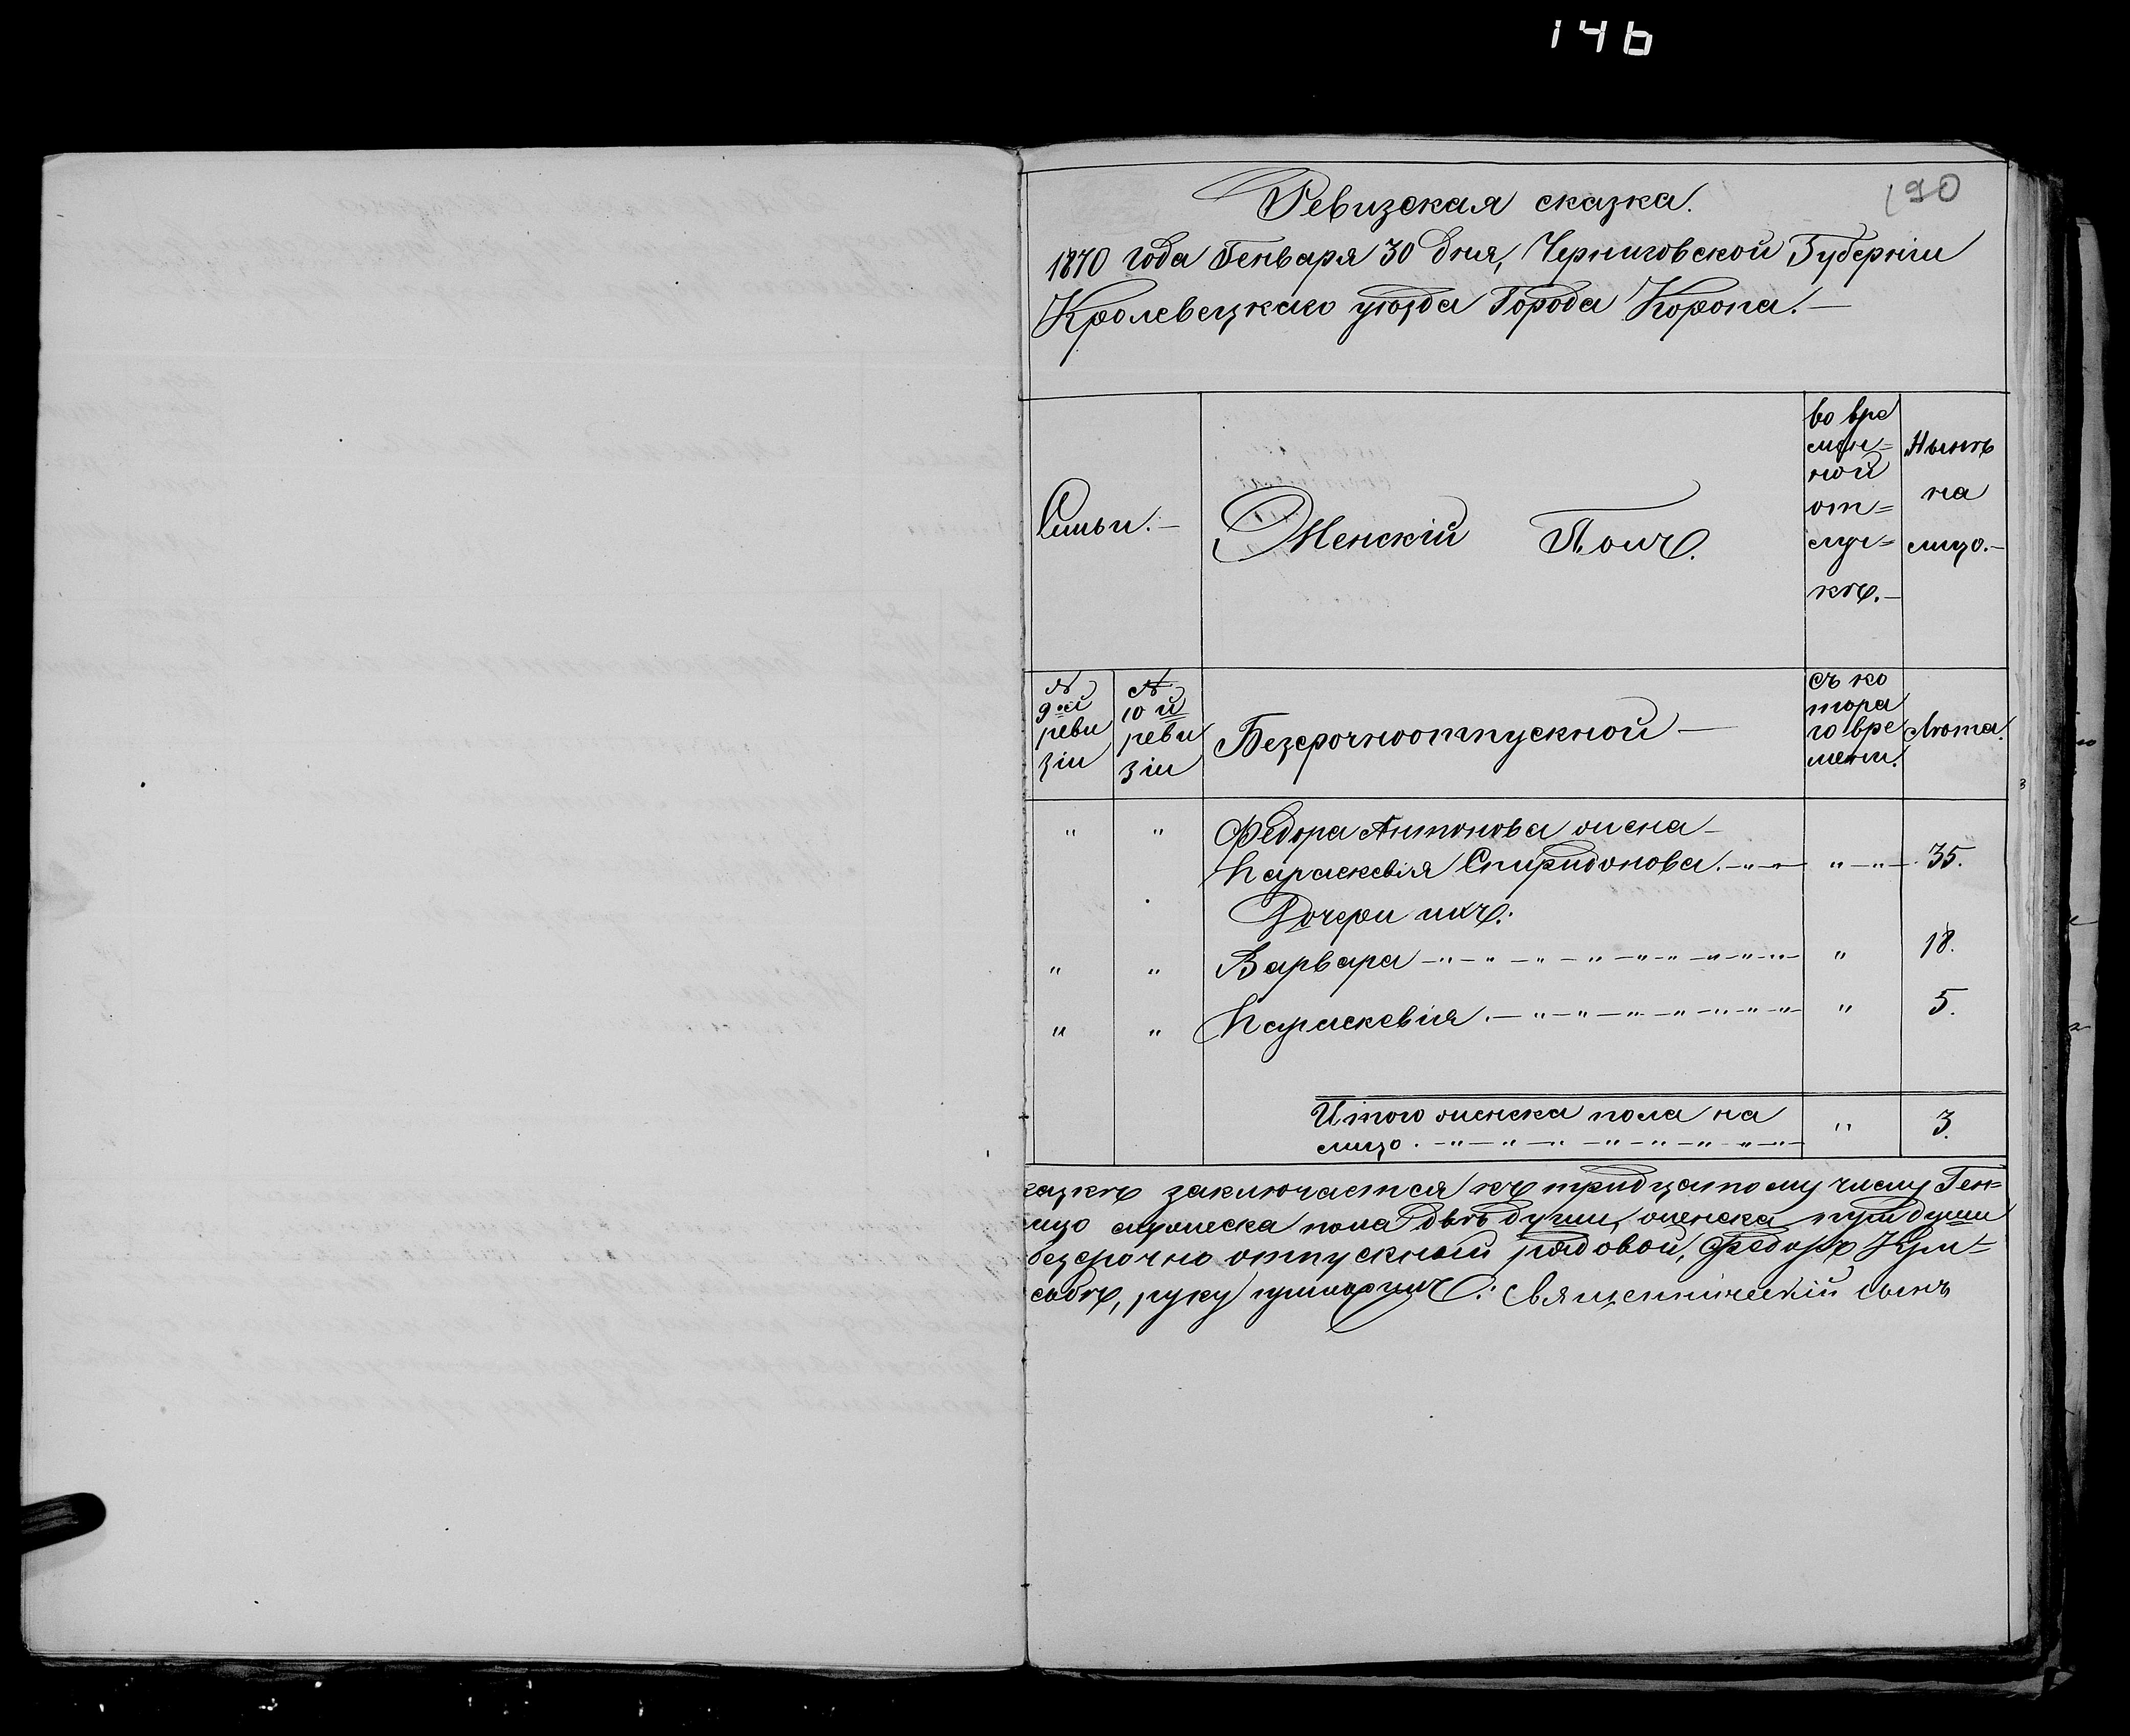 146
190
Ревизская сказка.
1870 года Генваря 30 дня, Черниговской Губерніи
Кролевецкаго уѣзда Города Коропа.—
Семьи.—
Женскій Полъ.
во вре
мѣн=
ной
от=
луч=
кѣ.—
Нынѣ
на
лицо.—
№
9ой
реви
зіи
№
10й
реви
зіи
Безсрочноотпускной —
съ ко
тора
го вре
мени.
Лѣта.
" " Федора Антонова жена —
Параскевія Спиридонова.—"— " —"— 35.
Дочери ихъ:
" " Варвара —"—"—"—"—"—"—"—"— " 18.
" " Параскевія.—"—"—"—"—"—"—"— " 5.
Итого женска пола на " 3.
лицо.—"—"—"—"—"—"—"—"—
казкѣ заключается къ тридцатому числу Ген=
лицо мужеска пола двѣ души, женска три души
безсрочно отпускный рядовой, Федоръ
руку приложилъ: Священническій сынъ